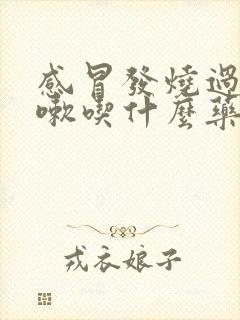 感冒發燒過
嗽喫什麼藥
戎衣娘子